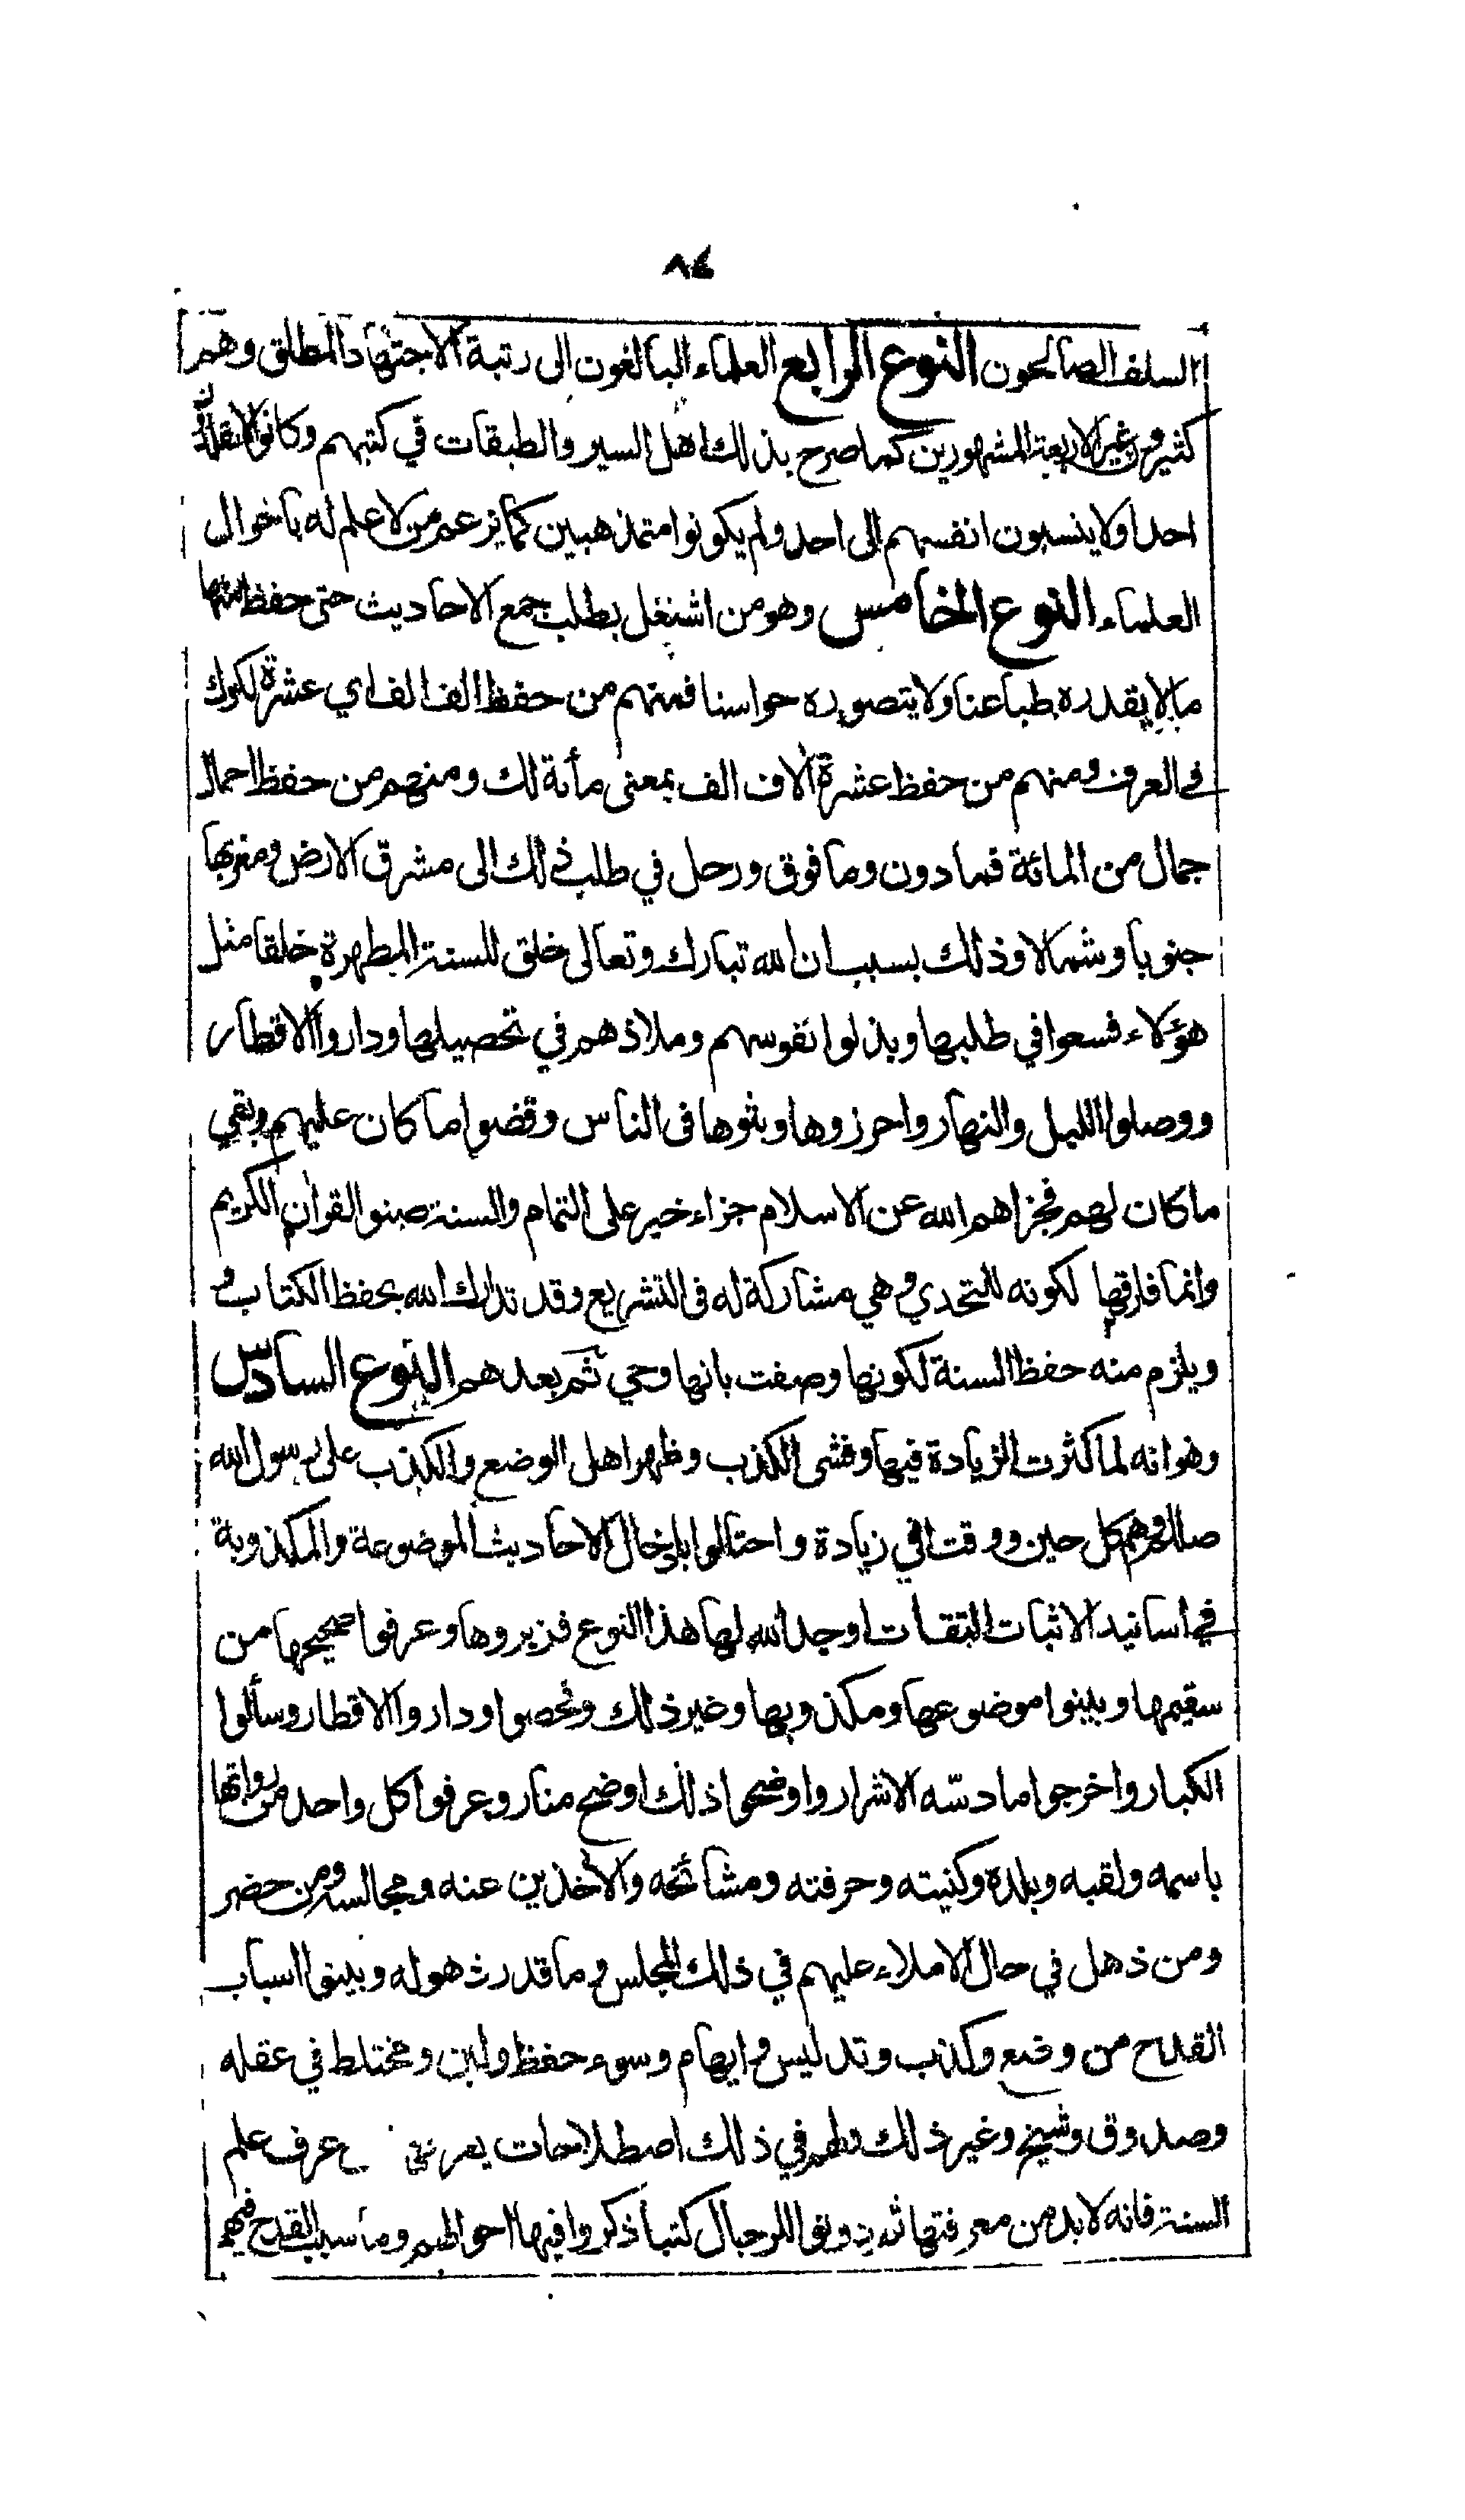 ٨٤
السلف الصالحون النوع الرابع العلماء البالغون الى رتبة الاجتهاد المطلق وهم
كثيرون غير الاربعة المشهورين كما صرح بذلك اهل السير والطبقات في كتبهم وكانوا لا يقلدون
احدا ولا ينسبون انفسهم الى احد ولم يكونوا متمذهبين كما يزعم من لا علم له باحوال
العلماء النوع الخامس وهو من اشتغل بطلب جمع الاحاديث حتى حفظ منها
ما لا يقدره طباعنا ولا يتصوره حواسنا فمنهم من حفظ الف الف اي عشرة لكوك
في العرف ومنهم من حفظ عشرة آلاف الف بمعنى مأئة لك ومنهم من حفظ احمال
جمال من المائة فما دون وما فوق ورحل في طلب ذلك الى مشرق الارض ومغربها
جنوبا وشمالا وذلك بسبب ان الله تبارك وتعالى خلق للسنة المطهرة خلقا مثل
هؤلاء فسعوا في طلبها وبذلوا نفوسهم وملاذهم في تحصيلها وداروا الاقطار
ووصلوا الليل والنهار واحرزوها وبثوها فى الناس وقضوا ما كان عليهم وبقي
ما كان لهم فجزاهم الله عن الاسلام جزاء خير على التمام والسنة صنو القرآن الكريم
وانما فارقها لكونه للتحدي وهي مشاركة له فى التشريع وقد تدارك الله بحفظ الكتاب و
ويلزم منه حفظ السنة لكونها وصفت بانها وحي ثم بعدهم النوع السادس
وهو انه لما كثرت الزيادة فيها وفشى الكذب وظهر اهل الوضع والكذب على رسول الله
صللم وهم كل حين ووقت في زيادة واحتالوا بادخال الاحاديث الموضوعة والمكذوبة
في اسانيد الاثبات الثقات اوجد الله لها هذا النوع فزبروها وعرفوا صحيحها من
سقيمها وبينوا موضوعها ومكذوبها وغير ذلك وفحصوا وداروا الاقطار وسألوا
الكبار واخرجوا ما دسّه الاشرار واوضحوا ذلك اوضح منار وعرفوا كل واحد من رواتها
باسمه ولقبه وبلده وكنيته وحرفته ومشائخه والآخذين عنه ومجالسه ومن حضر
ومن ذهل في حال الاملاء عليهم في ذلك المجلس وما قدر ذهوله وبينوا اسباب
القدح من وضع وكذب وتدليس وايهام وسوء حفظ ولين ومختلط في عقله
وصدوق وشيخ وغير ذلك ولهم في ذلك اصطلاحات عرف علم
السنة فانه لا بد من معرفتها ثم دونوا للرجال كتبا ذكروا فيها احوالهم وما سبب القدح فيهم